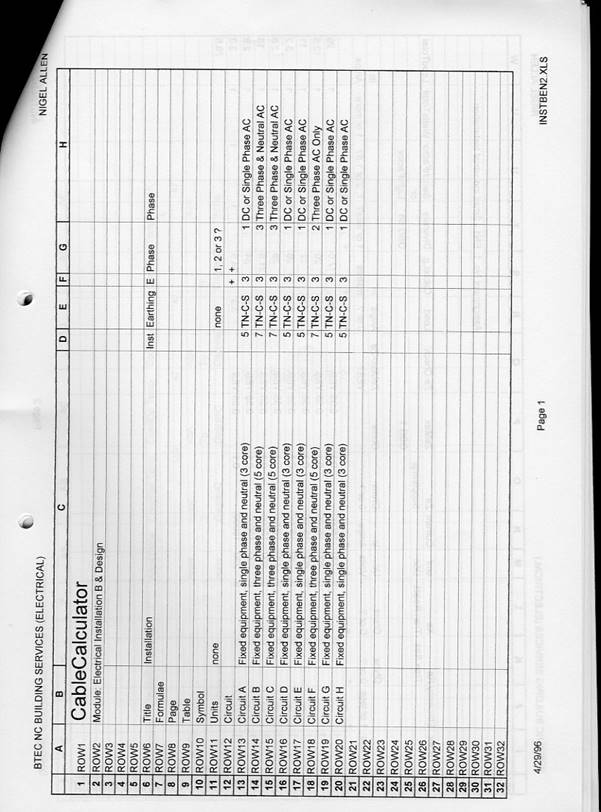 BTEC NC BUILDING SERVICES (ELECTRICAL) NIGEL ALLEN
A B C D E F G H
1 ROW1 CableCalculator
2 ROW2 Module: Electrical Installation B & Design
3 ROW3
4 ROW4
5 ROW5
6 ROW6 Title Installation Inst Earthing E Phase Phase
7 ROW7 Formulae
8 ROW8 Page
9 ROW9 Table
10 ROW10 Symbol
11 ROW11 Units none none 1, 2 or 3 ?
12 ROW12 Circuit + +
13 ROW13 Circuit A Fixed equipment, single phase and neutral (3 core) 5 TN-C-S 3 1 DC or Single Phase AC
14 ROW14 Circuit B Fixed equipment, three phase and neutral (5 core) 7 TN-C-S 3 3 Three Phase & Neutral AC
15 ROW15 Circuit C Fixed equipment, three phase and neutral (5 core) 7 TN-C-S 3 3 Three Phase & Neutral AC
16 ROW16 Circuit D Fixed equipment, single phase and neutral (3 core) 5 TN-C-S 3 1 DC or Single Phase AC
17 ROW17 Circuit E Fixed equipment, single phase and neutral (3 core) 5 TN-C-S 3 1 DC or Single Phase AC
18 ROW18 Circuit F Fixed equipment, three phase and neutral (5 core) 7 TN-C-S 3 2 Three Phase AC Only
19 ROW19 Circuit G Fixed equipment, single phase and neutral (3 core) 5 TN-C-S 3 1 DC or Single Phase AC
20 ROW20 Circuit H Fixed equipment, single phase and neutral (3 core) 5 TN-C-S 3 1 DC or Single Phase AC
21 ROW21
22 ROW22
23 ROW23
24 ROW24
25 ROW25
26 ROW26
27 ROW27
28 ROW28
29 ROW29
30 ROW30
31 ROW31
32 ROW32
4/29/96 Page 1 INSTBEN2.XLS